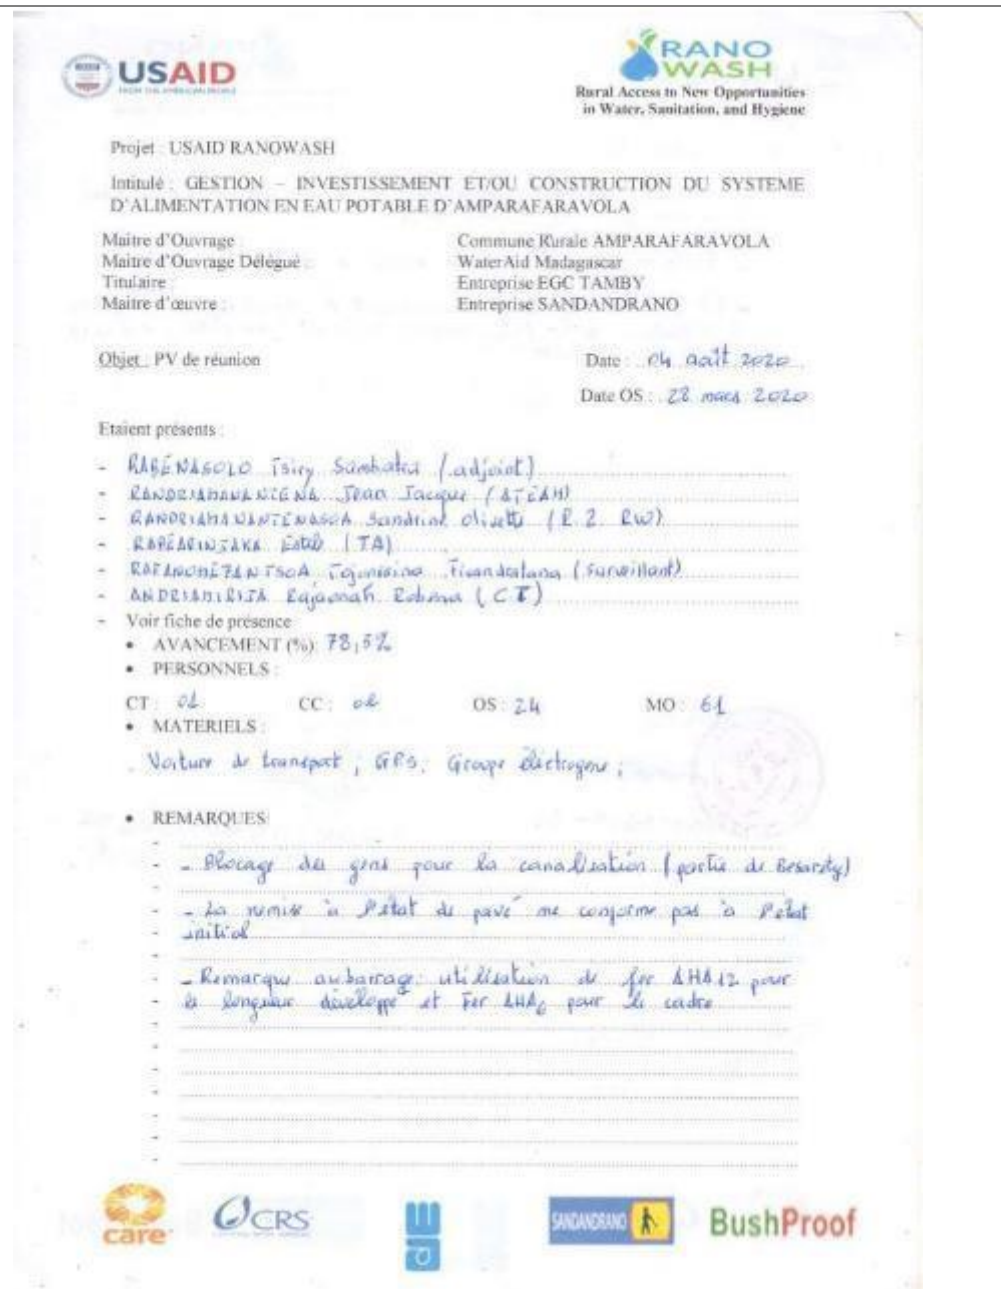 USAID
FROM THE AMERICAN PEOPLE
RANO
WASH
Rural Access to New Opportunities
in Water, Sanitation, and Hygiene
Projet : USAID RANOWASH
Intitulé : GESTION – INVESTISSEMENT ET/OU CONSTRUCTION DU SYSTEME
D'ALIMENTATION EN EAU POTABLE D'AMPARAFARAVOLA
Maitre d'Ouvrage : Commune Rurale AMPARAFARAVOLA
Maitre d'Ouvrage Délégué : WaterAid Madagascar
Titulaire : Entreprise EGC TAMBY
Maitre d'œuvre : Entreprise SANDANDRANO
Objet : PV de réunion Date : 04 août 2020
Date OS : 22 mars 2020
Etaient présents :
- RABENASOLO Tsiry Sambatra (adjoint)
- RANDRIAMANANTENA Jean Jacque (ATEAH)
- RANDRIAMANANTENASOA Sandrine (R.2. RW)
- (TA)
- (Surveillant)
- ANDRIAMIRIJA Rajaonah (CT)
- Voir fiche de présence
• AVANCEMENT (%): 78,5%
• PERSONNELS :
CT : 01 CC : 02 OS : 24 MO : 61
• MATERIELS :
Voiture de transport ; GPS ; Groupe électrogène ;
• REMARQUES
- Blocage des gens pour la canalisation (partie de Besarety)
- La remise à l'état de pavé ne conforme pas à l'état
initial
- Remarque au barrage : utilisation de fer AHA12 pour
la longueur développé et Fer AHA6 pour le cadre
care
CRS
SANDANDRANO
BushProof